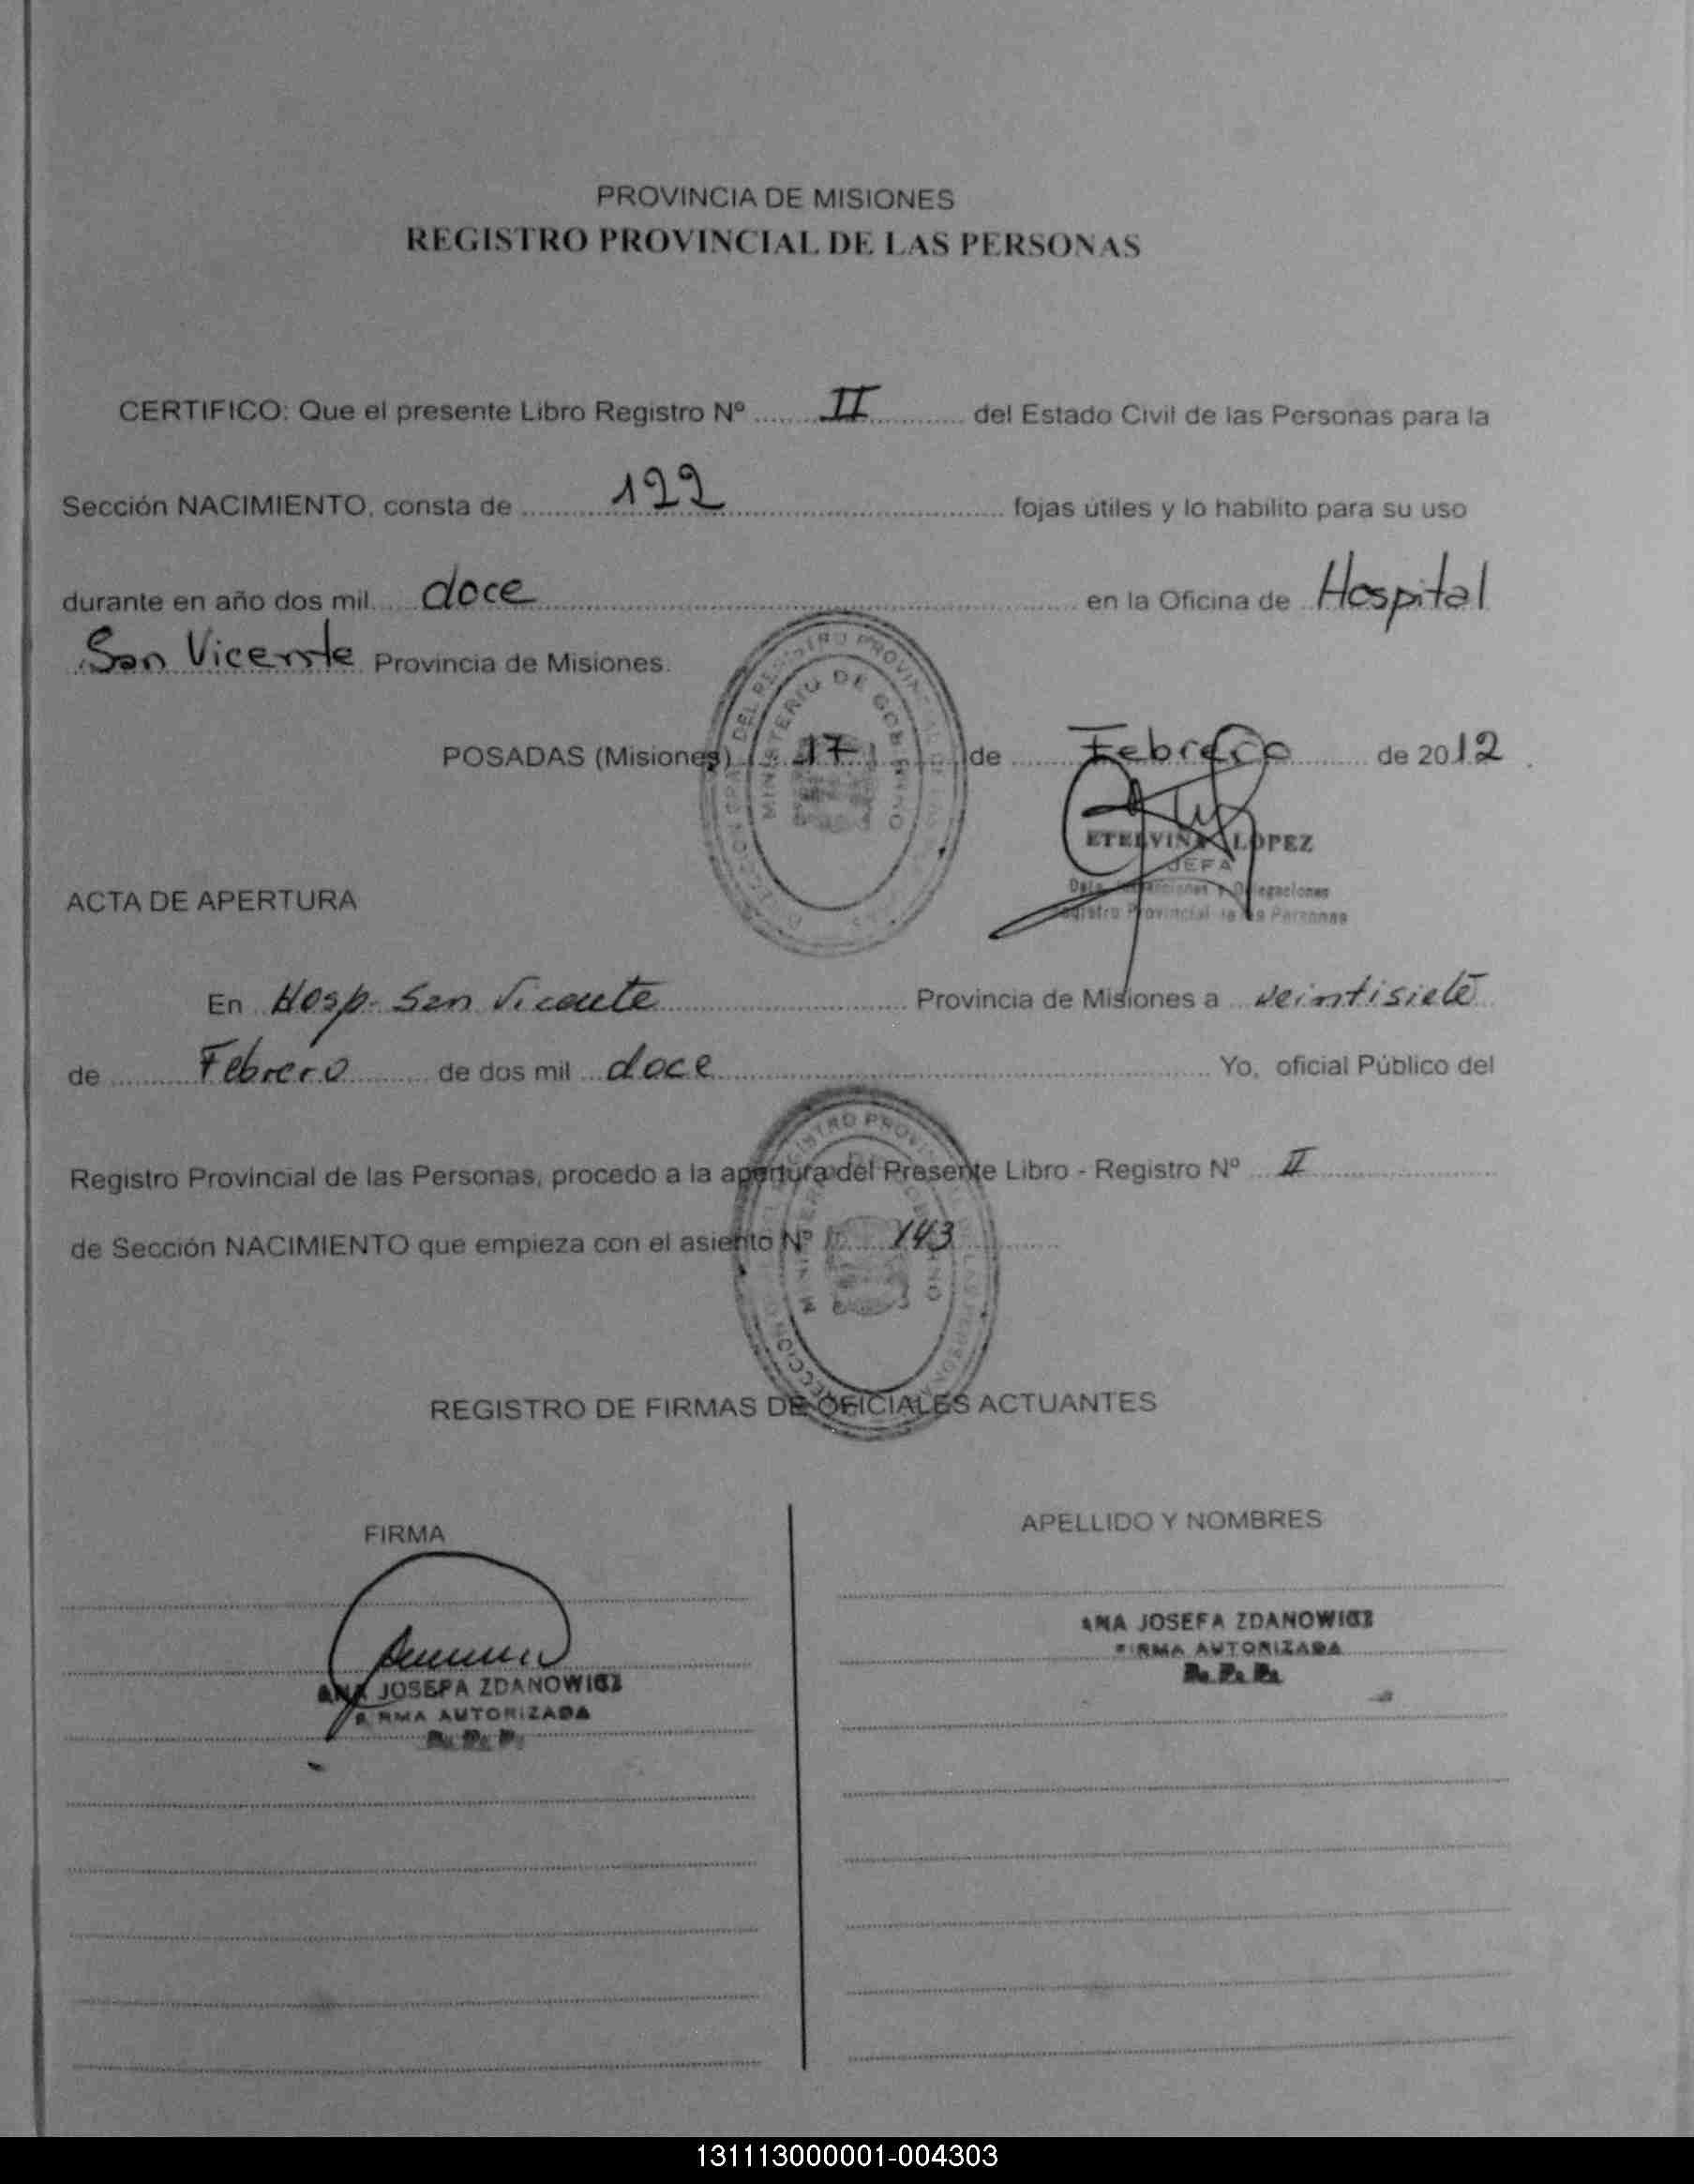 PROVINCIA DE MISIONES
REGISTRO PROVINCIAL DE LAS PERSONAS
CERTIFICO: Que el presente Libro Registro Nº II del Estado Civil de las Personas para la
Sección NACIMIENTO, consta de 122 fojas útiles y lo habilito para su uso
durante en año dos mil doce en la Oficina de Hospital
San Vicente Provincia de Misiones.
POSADAS (Misiones) 17 de Febrero de 2012.
MINISTERIO DE GOBIERNO
ETELVINA LOPEZ
JEFA
Delegaciones
Registro Provincial de las Personas
ACTA DE APERTURA
En Hosp. San Vicente Provincia de Misiones a veintisiete
de Febrero de dos mil doce Yo, oficial Público del
Registro Provincial de las Personas, procedo a la apertura del Presente Libro - Registro Nº II
de Sección NACIMIENTO que empieza con el asiento Nº 143
REGISTRO DE FIRMAS DE OFICIALES ACTUANTES
FIRMA
APELLIDO Y NOMBRES
ANA JOSEFA ZDANOWICZ
FIRMA AUTORIZADA
R. P. P.
ANA JOSEFA ZDANOWICZ
FIRMA AUTORIZADA
R. P. P.
131113000001-004303